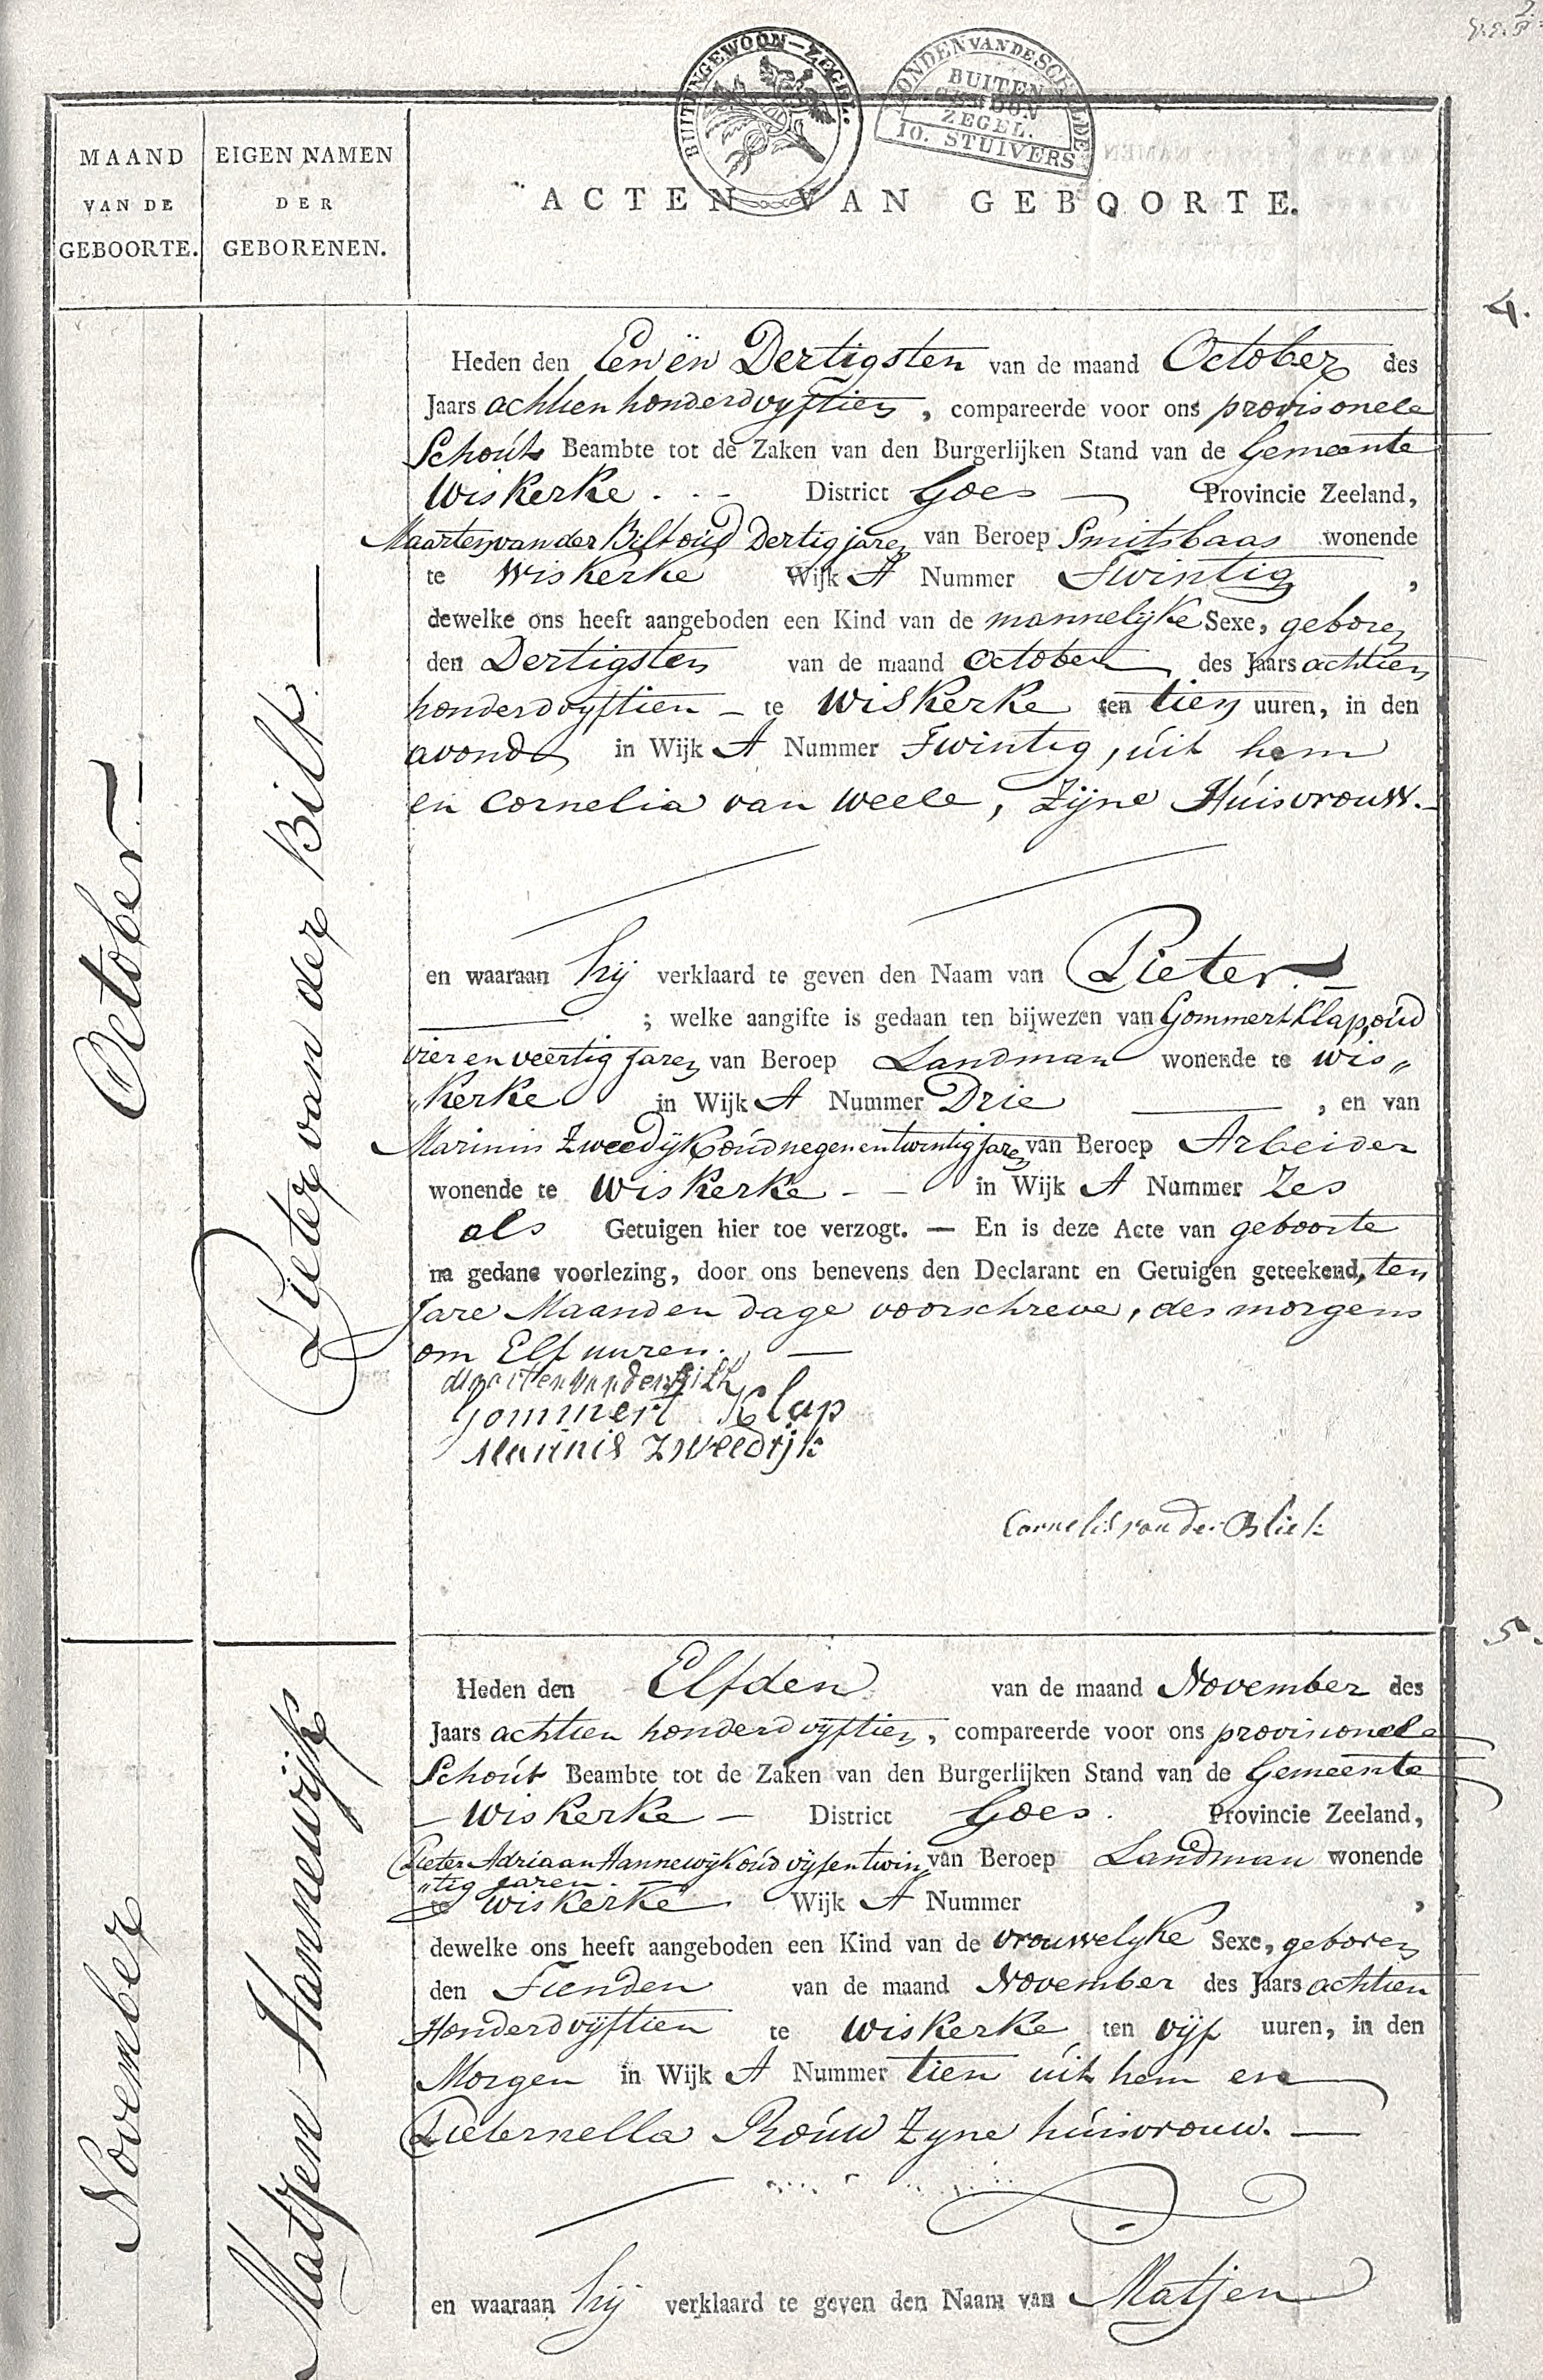 BUITENGEWOON-ZEGEL.
MONDEN VAN DE SCHELDE
BUITEN
GEWOON
ZEGEL.
10. STUIVERS
MAAND
VAN DE
GEBOORTE.
EIGEN NAMEN
DER
GEBORENEN.
ACTEN VAN GEBOORTE.
4.
October
Pieter van der Bilt
Heden den Een ën Dertigsten van de maand October des
Jaars achtien honderd vyftien, compareerde voor ons provisonele
Schout Beambte tot de Zaken van den Burgerlijken Stand van de Gemeente
Wiskerke District Goes Provincie Zeeland,
Maarten van der Bilt oud Dertig jaren van Beroep Smitsbaas wonende
te Wiskerke Wijk A Nummer Twintig,
dewelke ons heeft aangeboden een Kind van de mannelyke Sexe, geboren
den Dertigsten van de maand October des Jaars achtien
honderd vyftien te Wiskerke ten tien uuren, in den
avond in Wijk A Nummer Twintig, uit hem
en Cornelia van Weele, Zijne Huisvrouw.
en waaraan hij verklaard te geven den Naam van Pieter
; welke aangifte is gedaan ten bijwezen van Gommert Klap, oud
vier en veertig jaren van Beroep Landman wonende te Wis„
„kerke in Wijk A Nummer Drie , en van
Marinis Zweedijk oud negen en twintig jaren van Beroep Arbeider
wonende te Wiskerke in Wijk A Nummer Zes
als Getuigen hier toe verzogt. — En is deze Acte van geboorte
na gedane voorlezing, door ons benevens den Declarant en Getuigen geteekend, ten
Jare Maand en Dage voorschreve, des morgens
om Elf uuren.
Maarten van der Bilt
Gommert Klap
Marinis Zweedijk
Cornelis van der Bliek
5.
November
Matjen Hannewijk
Heden den Elfden van de maand November des
Jaars achtien honderd vyftien, compareerde voor ons provisionele
Schout Beambte tot de Zaken van den Burgerlijken Stand van de Gemeente
Wiskerke District Goes. Provincie Zeeland,
Pieter Adriaan Hannewijk oud vijf en twin„ van Beroep Landman wonende
„tig jaren.
te Wiskerke Wijk A Nummer ,
dewelke ons heeft aangeboden een Kind van de vrouwelyke Sexe, geboren
den Tienden van de maand November des Jaars achtien
Honderd vijftien te Wiskerke ten vijf uuren, in den
Morgen in Wijk A Nummer tien uit hem en
Pieternella Rouw Zyne huisvrouw.
en waaraan hij verklaard te geven den Naam van Matjen